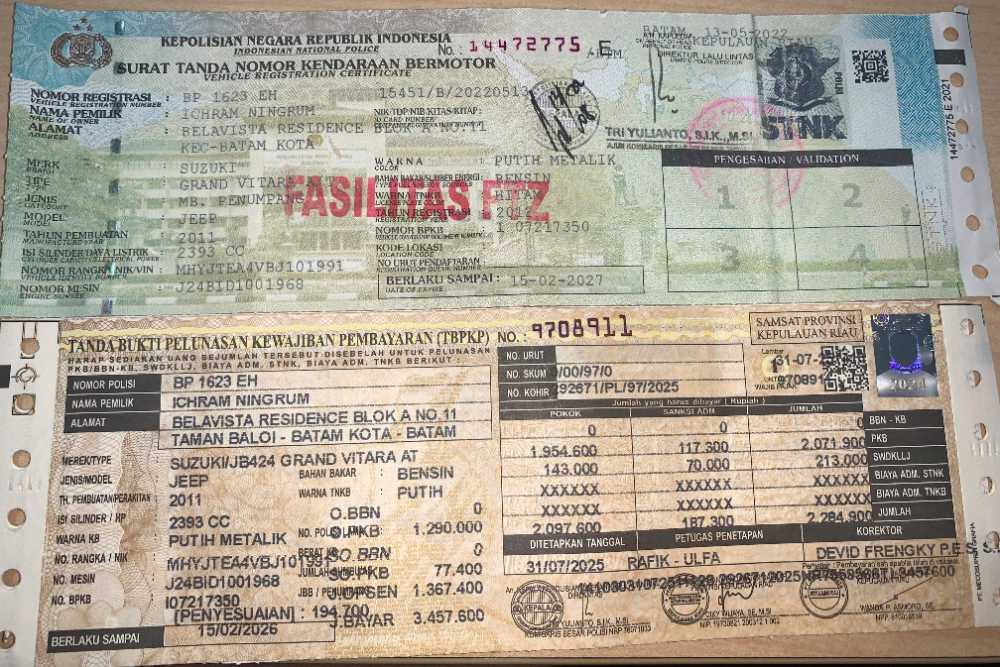 KEPOLISIAN NEGARA REPUBLIK INDONESIA
INDONESIAN NATIONAL POLICE
No. : 14472775 E
SURAT TANDA NOMOR KENDARAAN BERMOTOR
VEHICLE REGISTRATION CERTIFICATE
BATAM 13-05-2022
KEPULAUAN RIAU
DIREKTUR LALU LINTAS
TRI YULIANTO, S.I.K., M.Si
STNK
POLRI
14472775 E 2021
NOMOR REGISTRASI : BP 1623 EH 15451/B/20220513
VEHICLE REGISTRATION NUMBER
NAMA PEMILIK : ICHRAM NINGRUM
NAME OF OWNER
NIK/TDP/NIB/KITAS/KITAP :
ALAMAT : BELAVISTA RESIDENCE BLOK A NO.11
ADDRESS
KEC-BATAM KOTA
MERK : SUZUKI
TIPE : GRAND VITARA
JENIS : MB. PENUMPANG
MODEL : JEEP
MODEL
TAHUN PEMBUATAN : 2011
MANUFACTURED YEAR
ISI SILINDER/DAYA LISTRIK : 2393 CC
NOMOR RANGKA/NIK/VIN : MHYJTEA4VBJ101991
NOMOR MESIN : J24BID1001968
ENGINE NUMBER
WARNA : PUTIH METALIK
COLOR
BAHAN BAKAR/SUMBER ENERGI : BENSIN
WARNA TNKB : HITAM
TAHUN REGISTRASI : 2012
REGISTRATION YEAR
NOMOR BPKB : I 07217350
KODE LOKASI :
LOCATION CODE
NO URUT PENDAFTARAN :
BERLAKU SAMPAI : 15-02-2027
DATE OF EXPIRE
FASILITAS FTZ
PENGESAHAN / VALIDATION
1 2
3 4
TANDA BUKTI PELUNASAN KEWAJIBAN PEMBAYARAN (TBPKP) NO. : 9708911
HARAP SEDIAKAN UANG SEJUMLAH TERSEBUT DISEBELAH UNTUK PELUNASAN
PKB/BBN-KB, SWDKLLJ, BIAYA ADM. STNK, BIAYA ADM. TNKB BERIKUT :
SAMSAT PROVINSI
KEPULAUAN RIAU
2024
NOMOR POLISI BP 1623 EH
NAMA PEMILIK ICHRAM NINGRUM
ALAMAT BELAVISTA RESIDENCE BLOK A NO.11
TAMAN BALOI - BATAM KOTA - BATAM
MEREK/TYPE SUZUKI/JB424 GRAND VITARA AT
JENIS/MODEL JEEP BAHAN BAKAR : BENSIN
TH. PEMBUATAN/PERAKITAN : 2011 WARNA TNKB : PUTIH
ISI SILINDER / HP 2393 CC O.BBN 0
WARNA KB : PUTIH METALIK O.PKB : 1.290.000
NO. RANGKA / NIK : MHYJTEA4VBJ101991 SO. BBN 0
NO. MESIN : J24BID1001968 SO.PKB 77.400
NO. BPKB : I07217350 1.367.400
[PENYESUAIAN] : 194.700 J.BAYAR 3.457.600
BERLAKU SAMPAI 15/02/2026
NO. URUT
NO. SKUM 0/00/97/0
NO. KOHIR 292671/PL/97/2025
Jumlah yang harus dibayar ( Rupiah )
POKOK SANKSI ADM JUMLAH
0 0 0 BBN - KB
1.954.600 117.300 2.071.900 PKB
143.000 70.000 213.000 SWDKLLJ
XXXXXX XXXXXX XXXXXX BIAYA ADM. STNK
XXXXXX XXXXXX XXXXXX BIAYA ADM. TNKB
2.097.600 187.300 2.284.900 JUMLAH
DITETAPKAN TANGGAL PETUGAS PENETAPAN KOREKTOR
31/07/2025 RAFIK - ULFA DEVID FRENGKY P.E